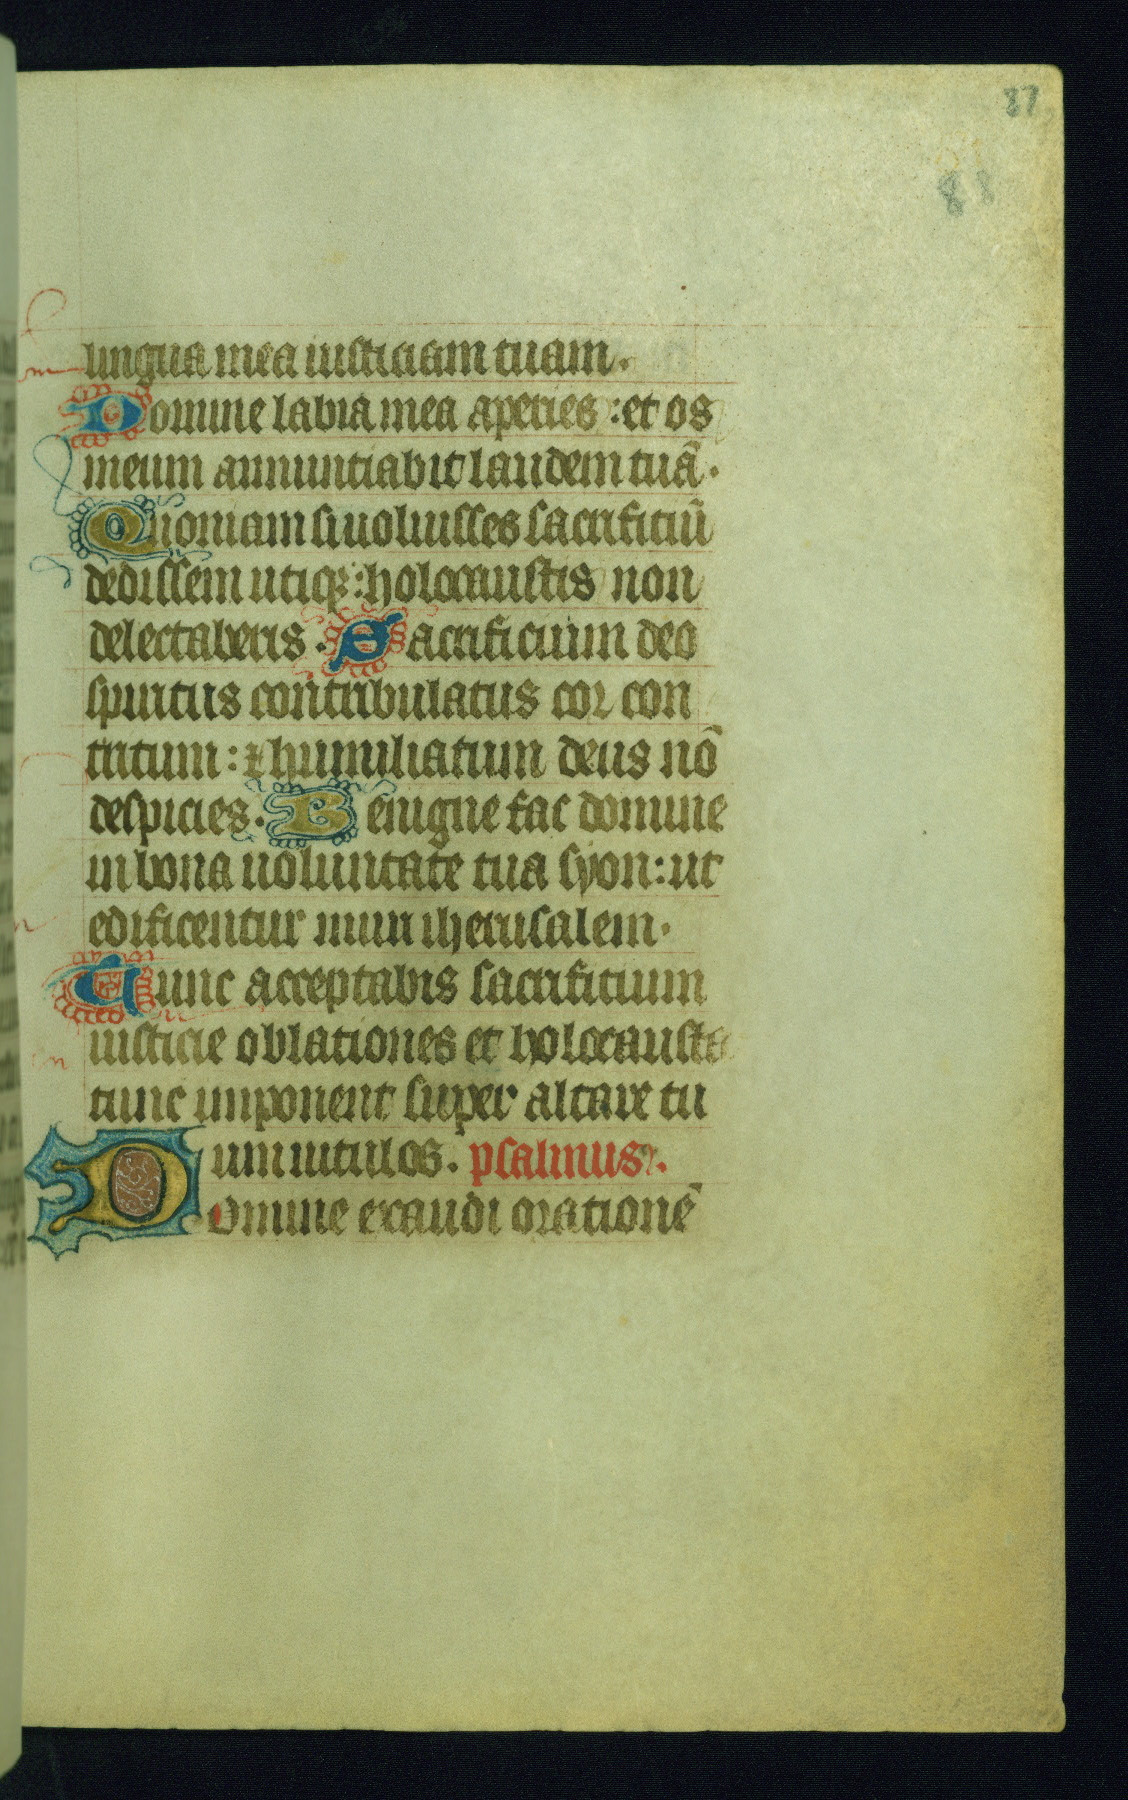 87
88
lingua mea iusticiam tuam.
Domine labia mea aperies : et os
meum annunciabit laudem tuã.
Quoniam si uoluisses sacrificiũ
dedissem utiqꝫ : holocaustis non
delectaberis. Sacrificium deo
spiritus contribulatus cor con
tritum : ⁊ humiliatum deus nõ
despicies. Benigne fac domine
in bona uoluntate tua syon : ut
edificentur muri iherusalem.
Tunc acceptabis sacrificium
iusticie oblationes et holocausta
tunc imponent super altare tu
um uitulos. psalmus.
Domine exaudi orationẽ